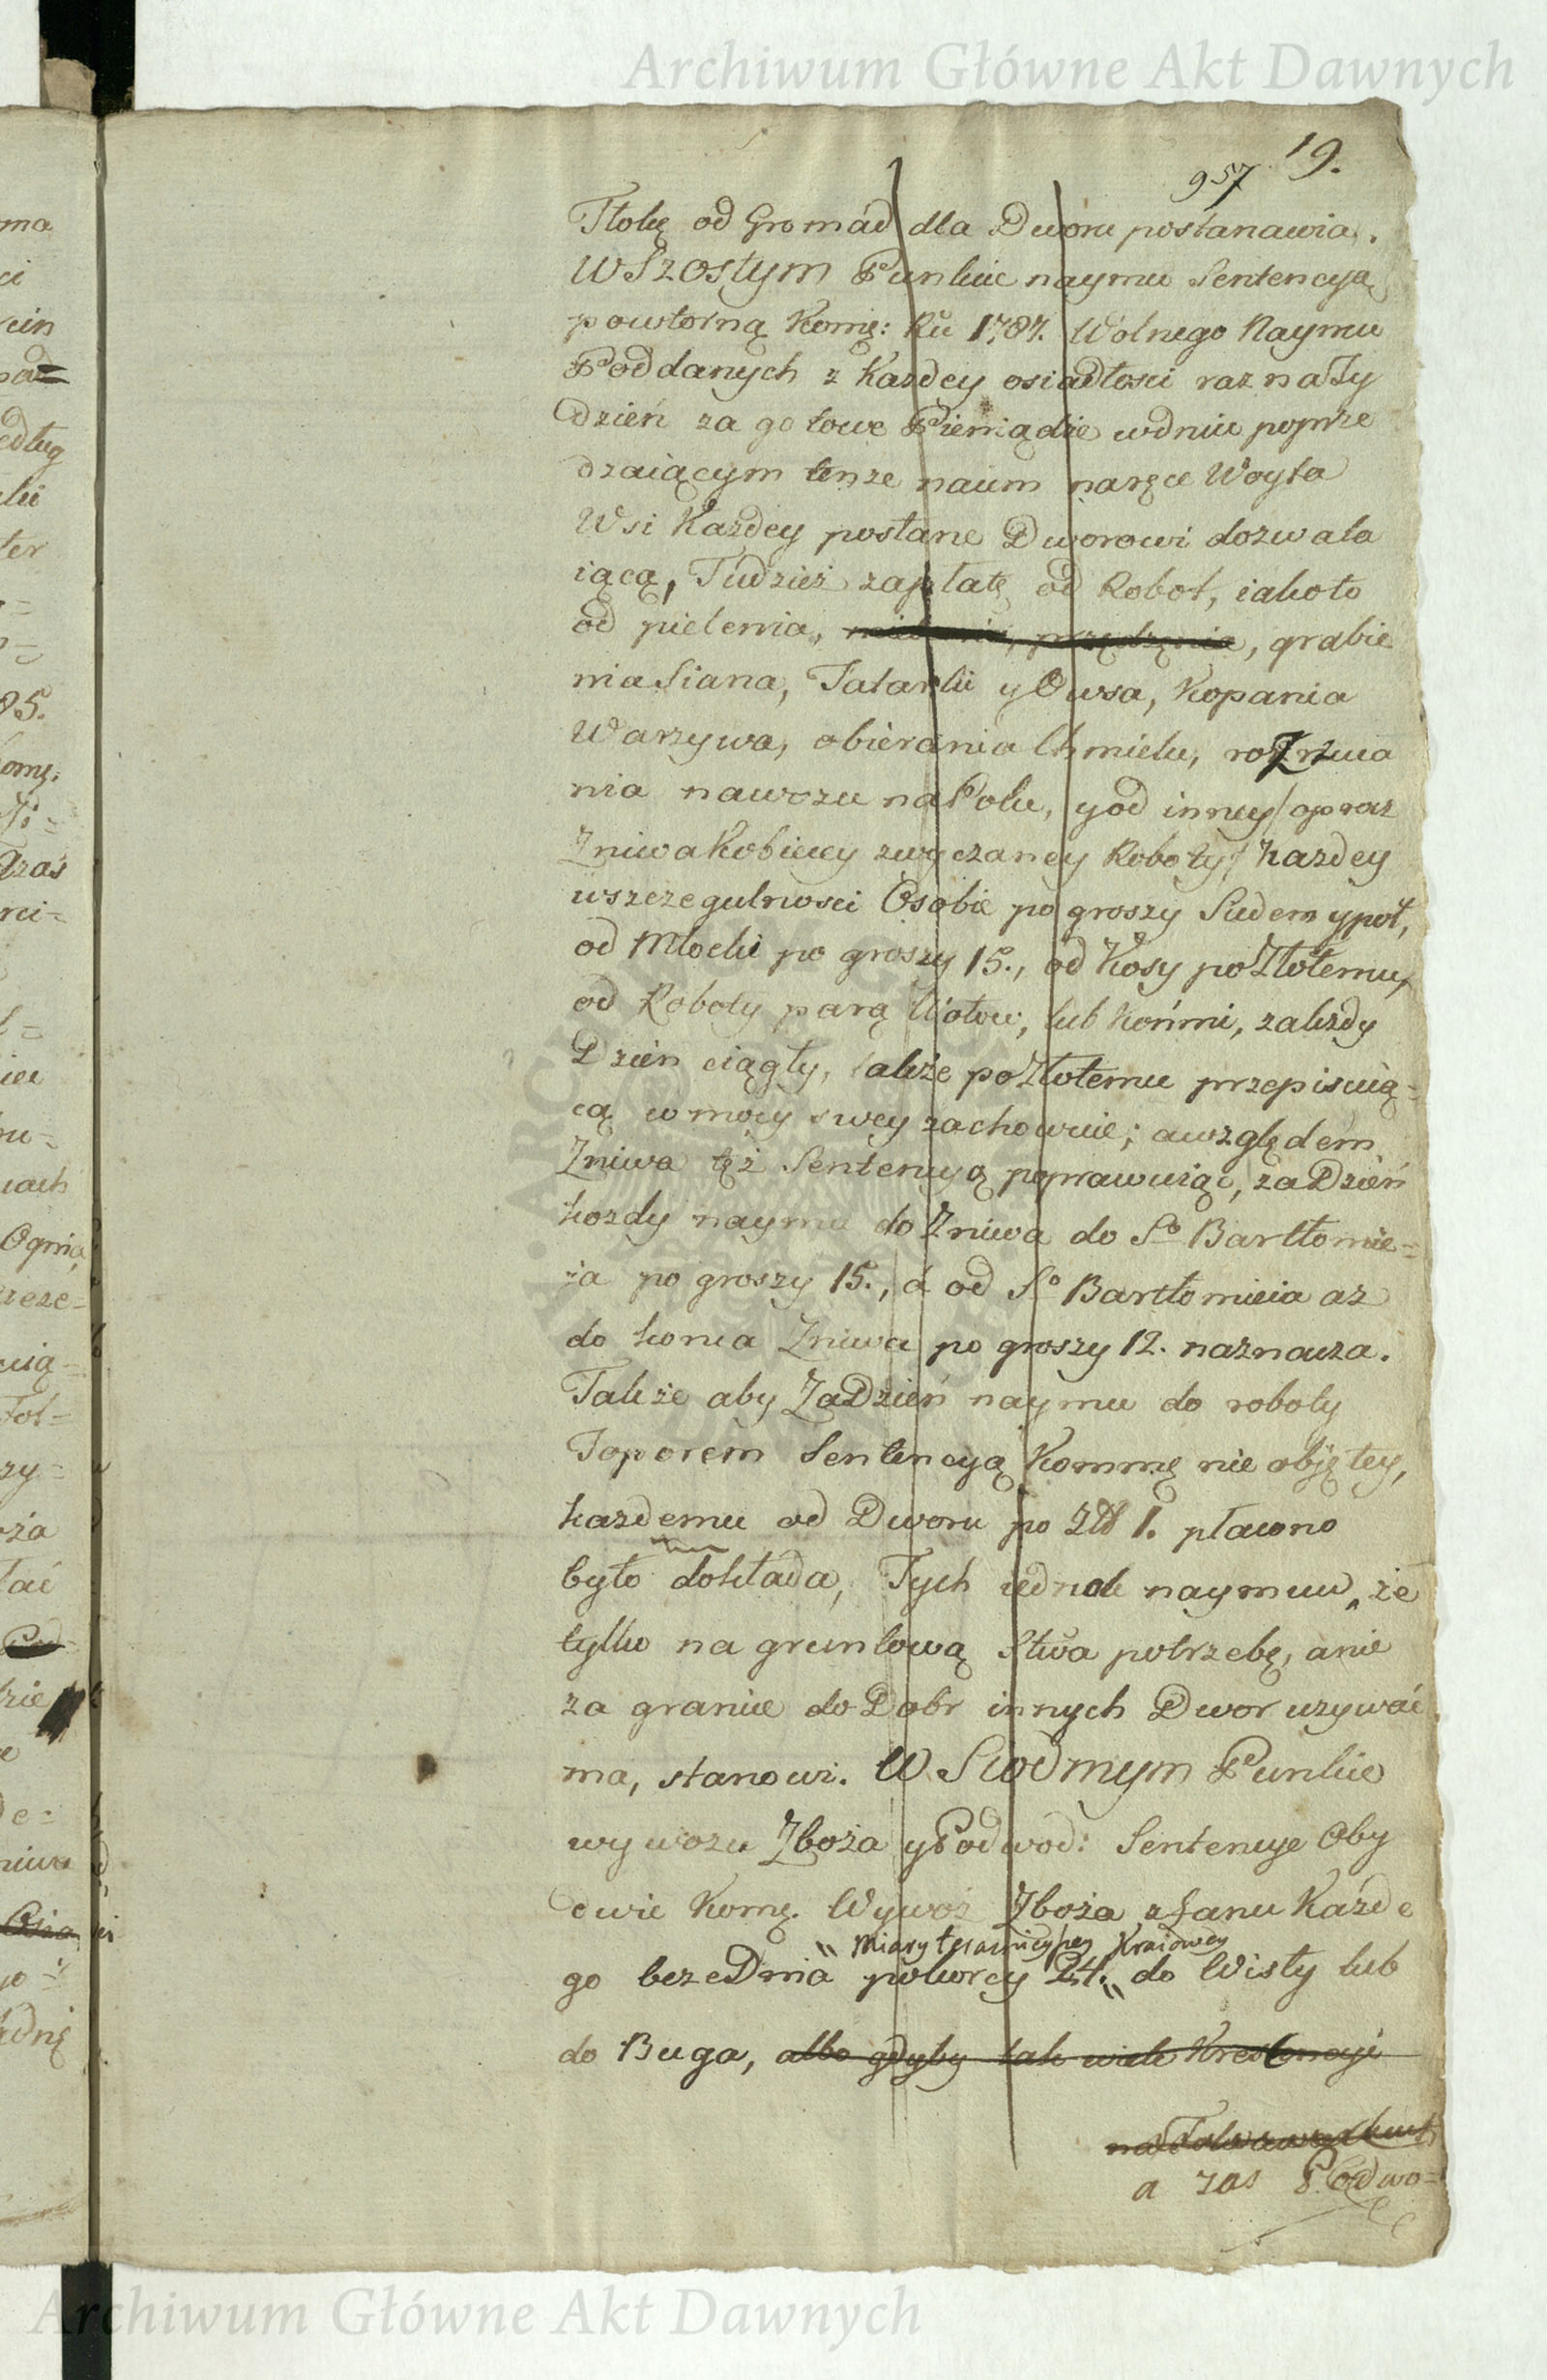 Archiwum Główne Akt Dawnych
19.
957
Tłokę od Gromad dla Dworu postanawia.
W Szostym Punkcie naymu Sentencyą
powtorną Komię: Ru 1787. Wolnego Naymu
Poddanych z Kazdey osiadłosci raz na Ty
dzień za gotowe Pieniądze w dniu poprze
dzaiącym tenze naiem na ręce Woyta
Wsi Kazdey posłane Dworowi dozwala
iącą, Tudzież zapłatę od Robot, iakoto
od pielenia, grabie
nia Siana, Tatarki y Owsa, Kopania
Warzywa, obierania Chmielu, rozrzuca
nia nawozu na Polu, y od inney / oprocz
Zniwa Kobiecey zwyczaney Roboty / kazdey
wszczegulnosci Osobie po groszy Siedem y poł,
od Młocki po groszy 15., od Kosy po Złotemu,
od Roboty parą Wołow, lub Końmi, za kazdy
Dzień ciągły, także po Złotemu przepisuią=
cą w mocy swey zachowuie; a względem
Zniwa tęż Sentencyą poprawuiąc, za Dzień
kozdy naymu do Zniwa do So Bartłomie=
ja po groszy 15., á od So Bartłomieia az
do konca Zniwa po groszy 12. naznacza.
Także aby Za Dzień naymu do roboty
Toporem Sentencyą Kommię nie objętey,
kazdemu od Dworu po Zł 1. płacono
było dokłada, Tych iednak naymuw, że
tylko na gruntową Stwa potrzebę, a nie
za granice do Dobr innych Dwor uzywać
ma, stanowi. W Siodmym Punkcie
wywozu Zboża y Podwod: Sentencye Oby
dwie Komię. Wywoz Zboża z Łanu Kazde
miary Kraiowey
go beze Dnia pokorcy 24. do Wisły lub
do Buga, albo gdyby tak wiele Krescencyi
na Folwarkach
a zas Podwo=
Archiwum Główne Akt Dawnych